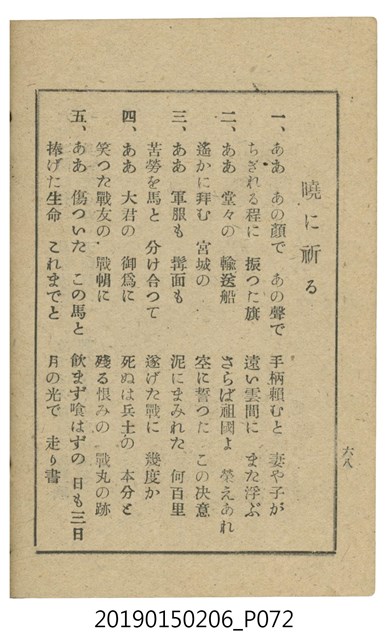 曉に祈る
一、ああ あの顏で あの聲で 手柄頼むと 妻や子が
ちぎれる程に 振つた旗 遠い雲間に また浮ぶ
二、ああ 堂々の 輸送船 さらば祖國よ 榮えあれ
遙かに拜む 宮城の 空に誓つた この決意
三、ああ 軍服も 髯面も 泥にまみれた 何百里
苦勞を馬と 分け合つて 遂げた戰に 幾度か
四、ああ 大君の 御爲に 死ぬは兵士の 本分と
笑つた戰友の 戰朝に 殘る恨みの 戰丸の跡
五、ああ 傷ついた この馬と 飲まず喰はずの 日も三日
捧げた生命 これまでと 月の光で 走り書
六八
20190150206_P072